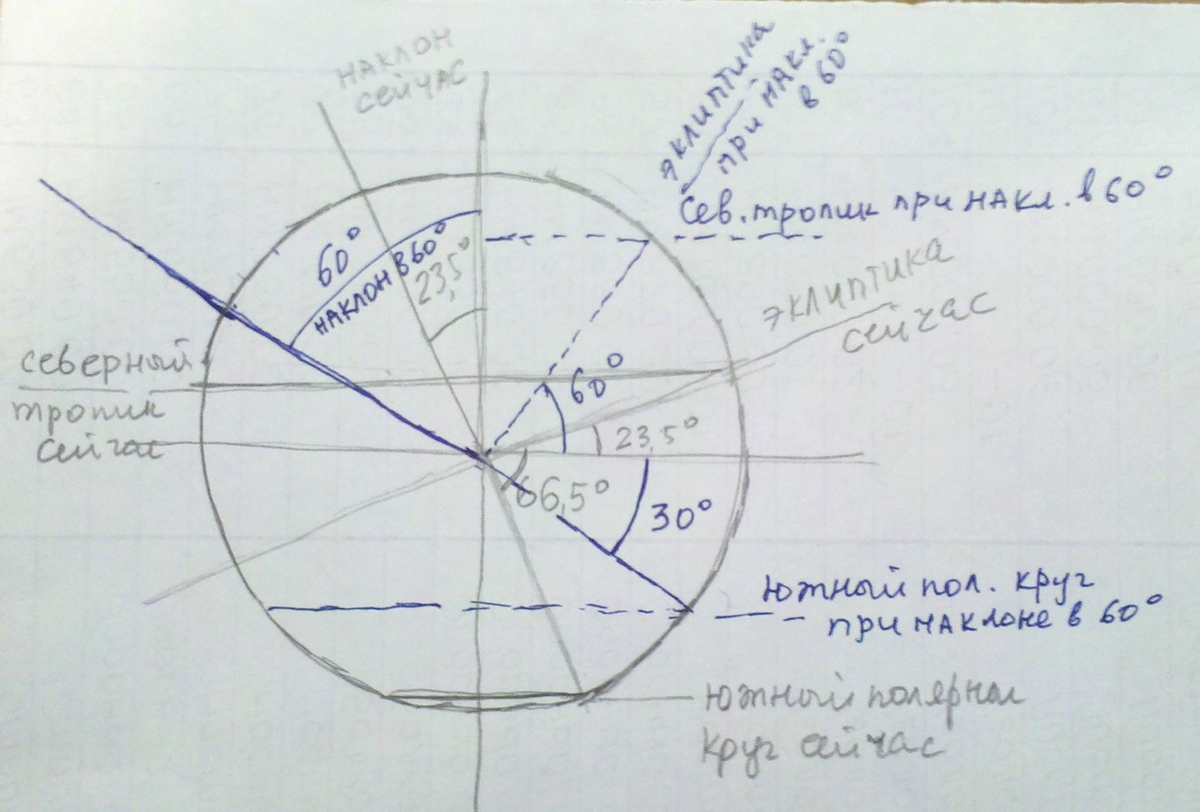 наклон
сейчас
эклиптика
при накл.
в 60°
Сев. тропик при накл. в 60°
60°
наклон в 60°
23,5°
эклиптика
сейчас
северный
тропик
сейчас
60°
23,5°
66,5°
30°
Южный пол. круг
при наклоне в 60°
Южный полярный
круг сейчас